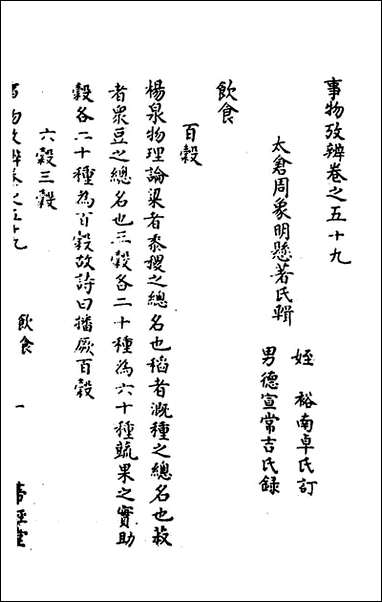 事物攷辨卷之五十九
太倉周象明懸著氏輯
姪 裕南卓氏訂
男德宣常吉氏録
飲食
百穀
楊泉物理論梁者黍稷之總名也稻者溉種之總名也菽
者衆豆之總名也三穀各二十種為六十種蔬果之實助
穀各二十種為百穀故詩曰播厥百穀
六穀三穀
事物攷辨卷之五十九 飲食 一